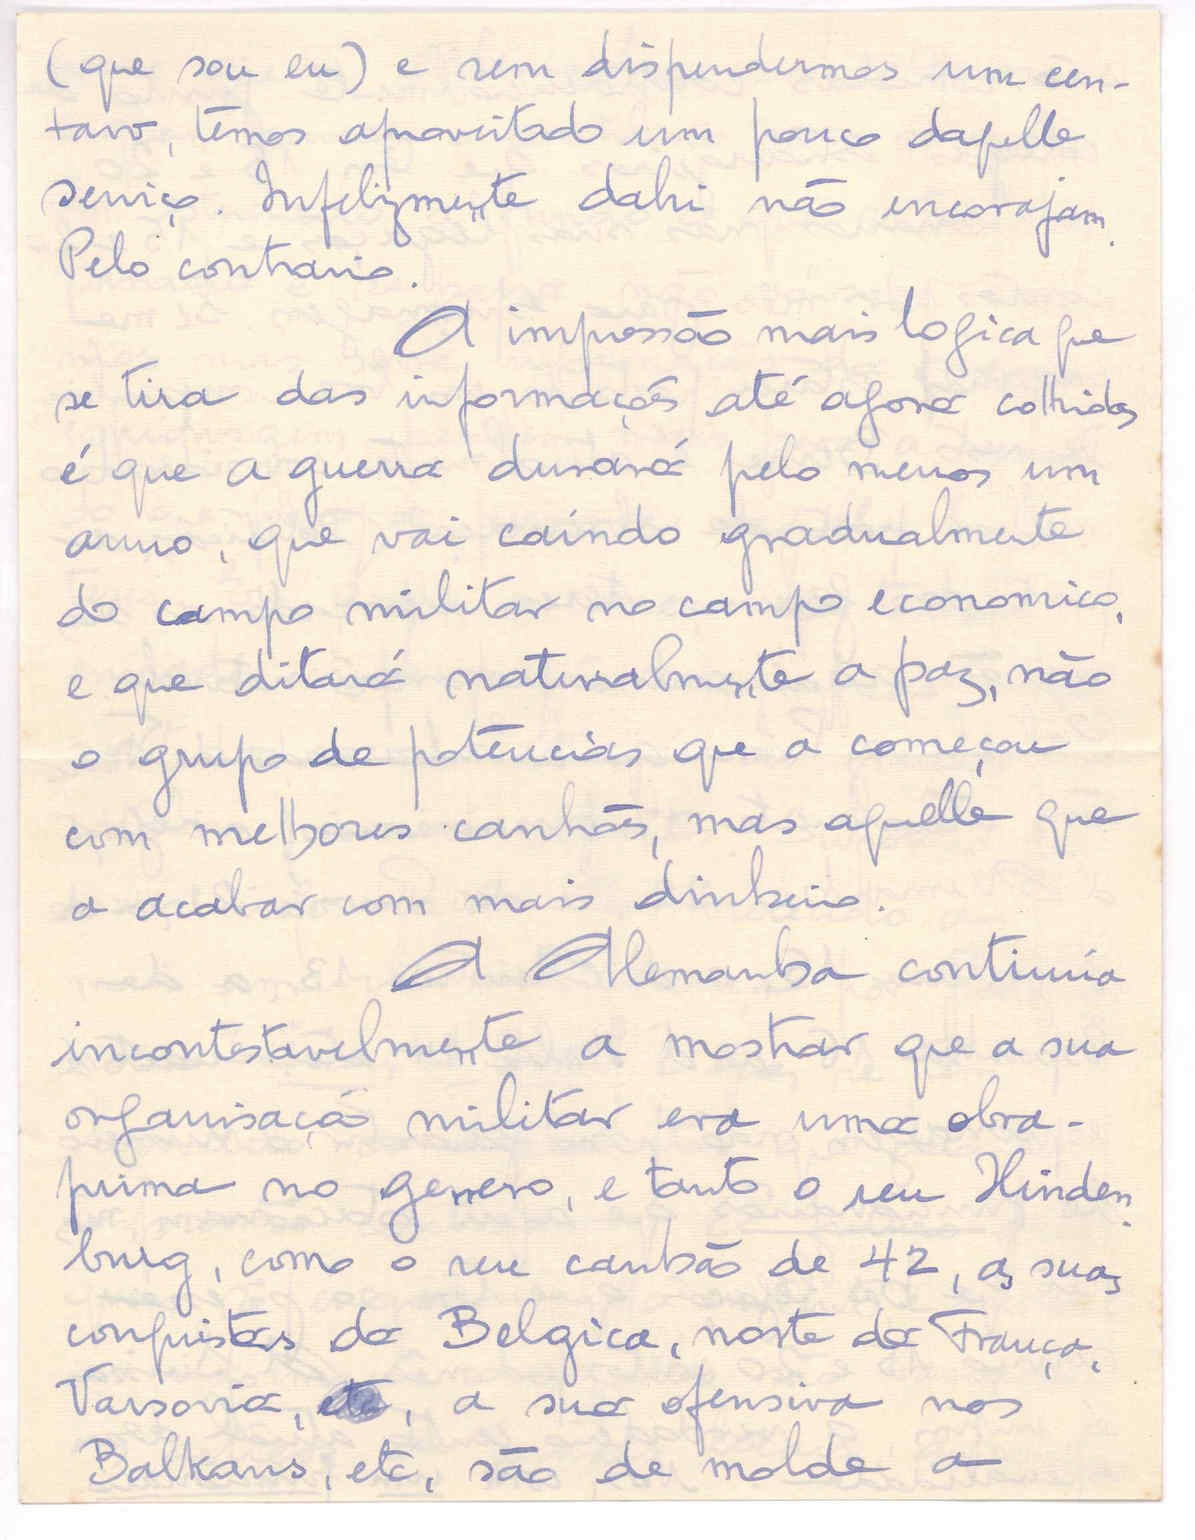 (que sou eu) e sem dispendermos um cen-
tavo, têmos aproveitado um pouco daquelle
serviço. Infelizmente dahi não encorajam.
Pelo contrario.
A impressão mais logica que
se tira das informações até agora colhidas
é que a guerra durará pelo menos um
anno, que vai caíndo gradualmente
do campo militar no campo economico,
e que ditará naturalmente a paz, não
o grupo de potencias que a começou
com melhores canhões, mas aquelle que
a acabar com mais dinheiro.
A Alemanha continúa
incontestavelmente a mostrar que a sua
organisação militar era uma obra-
prima no genero, e tanto o seu Hinden-
burg, como o seu canhão de 42, as suas
conquistas da Belgica, norte da França,
Varsovia, etc, a sua ofensiva nos
Balkans, etc, são de molde a